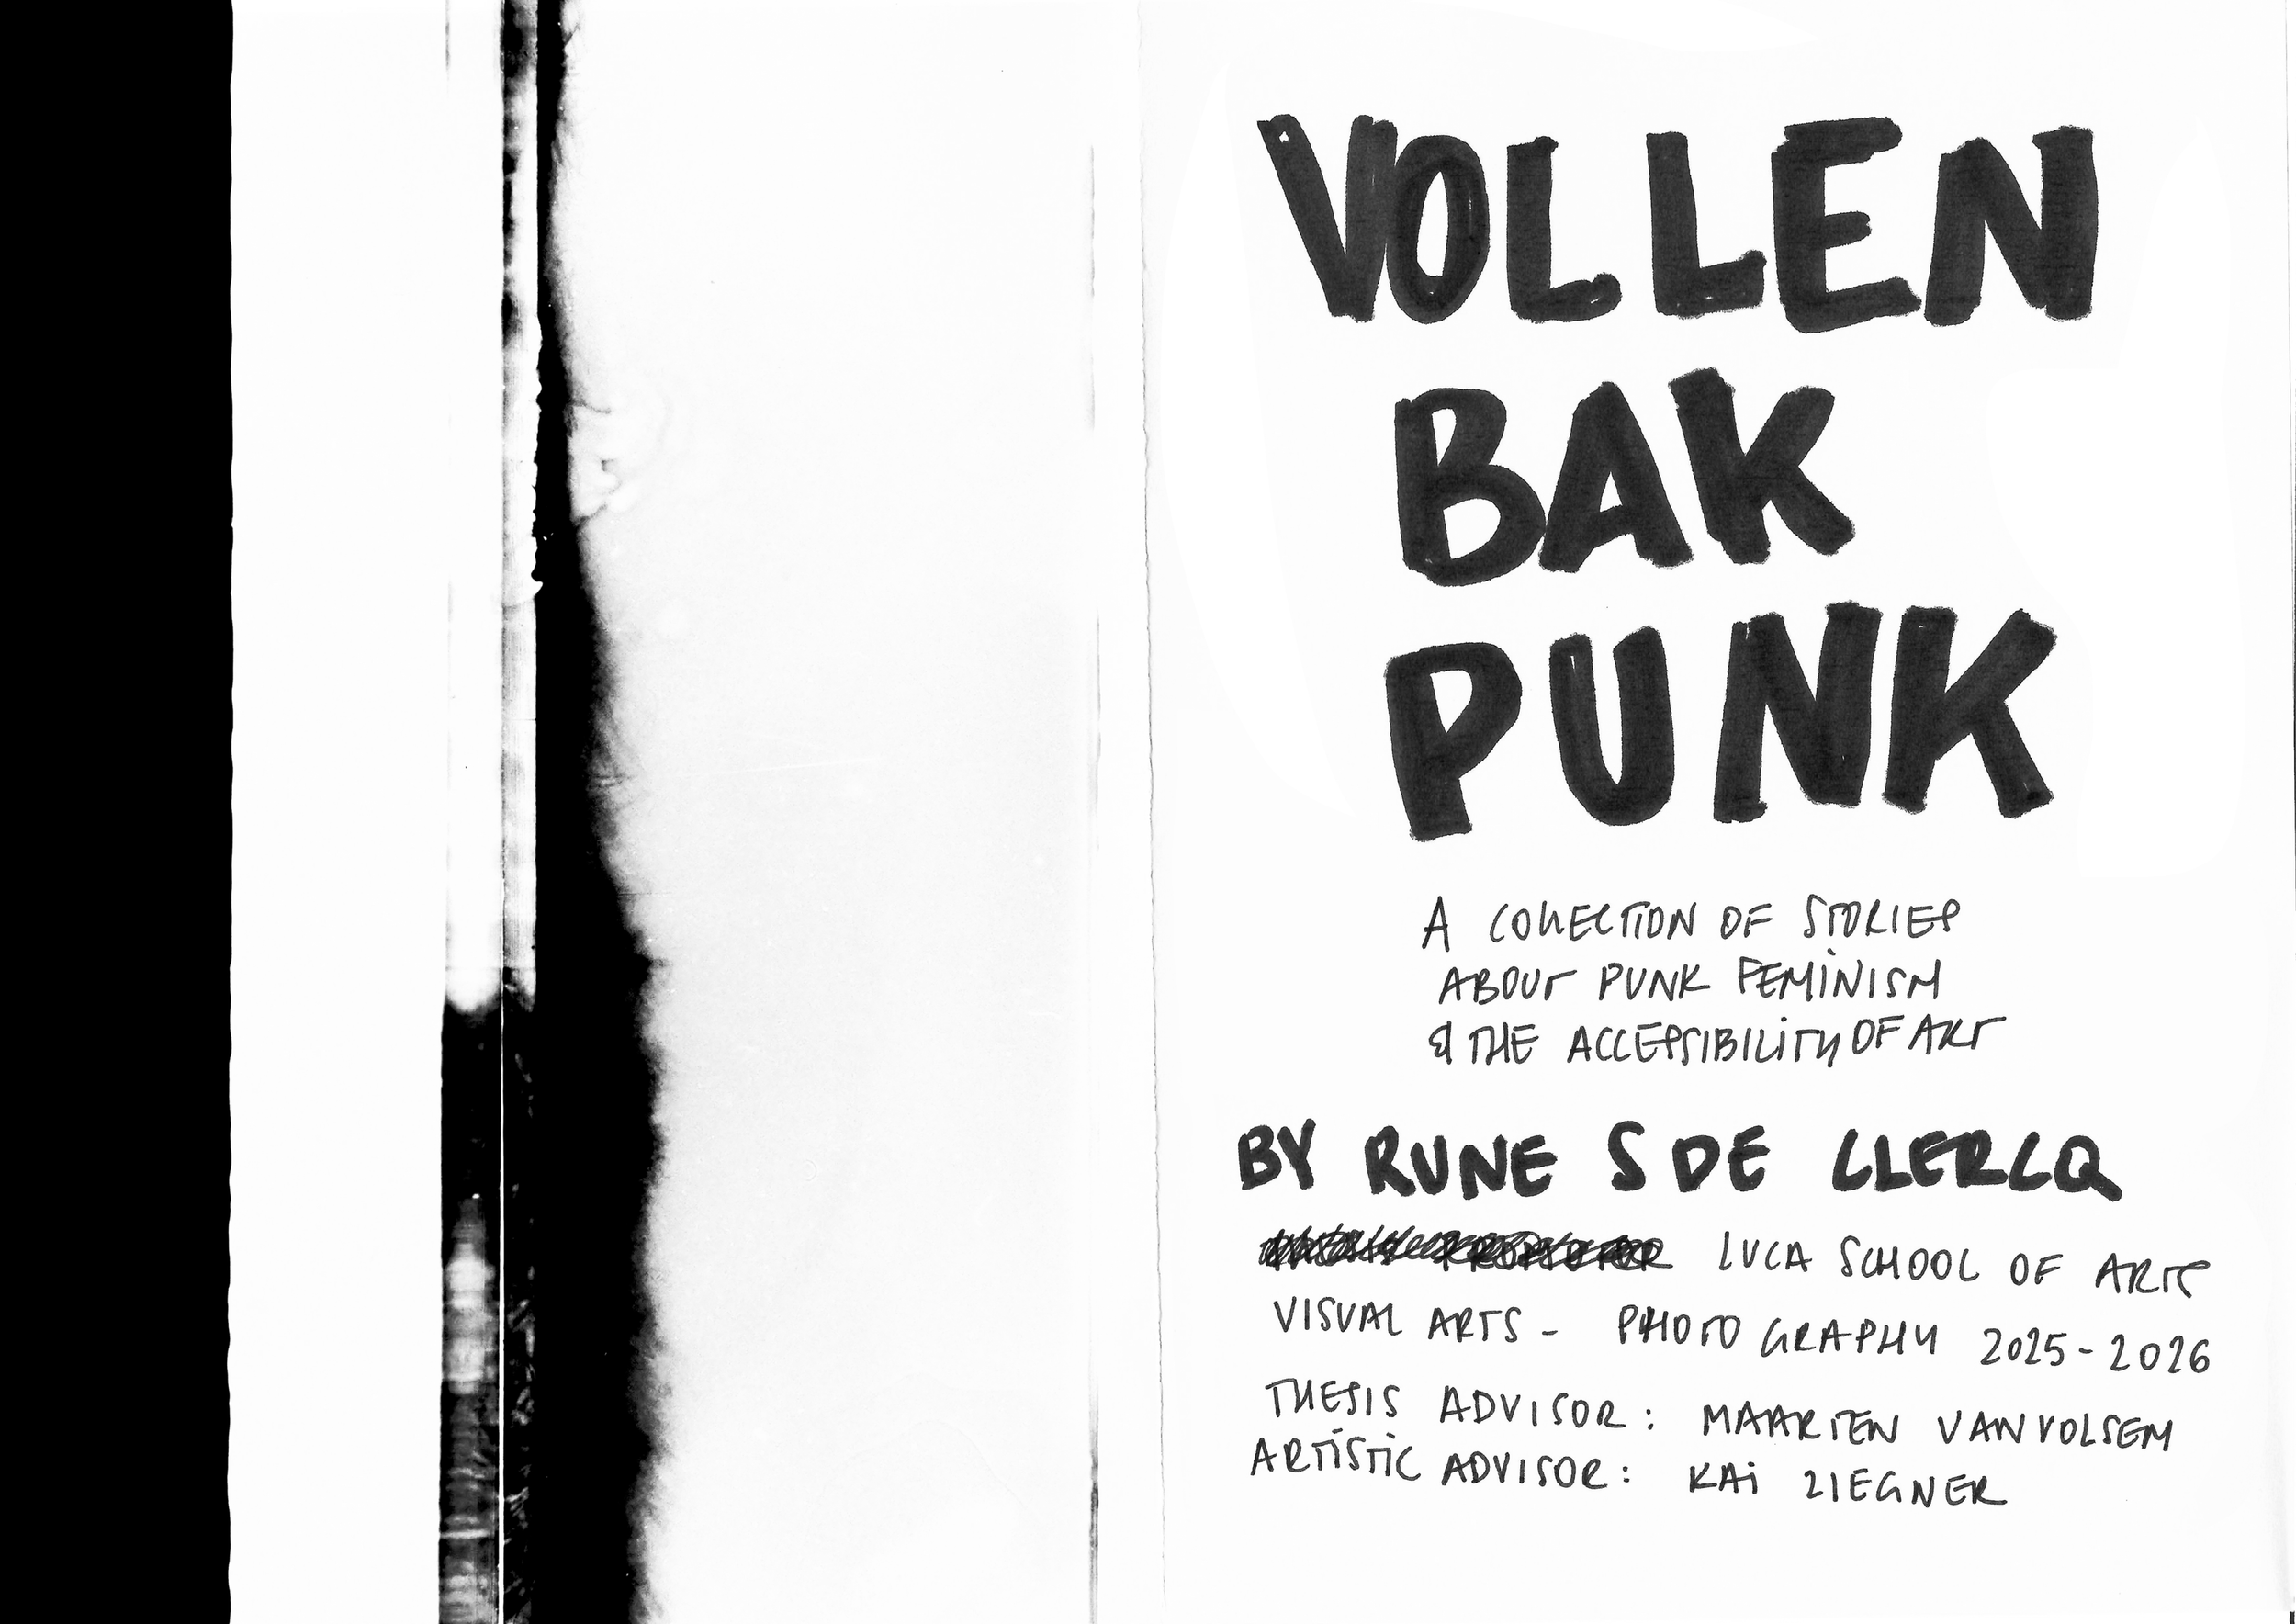 VOLLEN
BAK
PUNK
A COLLECTION OF STORIES
ABOUT PUNK FEMINISM
& THE ACCESSIBILITY OF ART
BY RUNE S DE CLERCQ
LUCA SCHOOL OF ARTS
VISUAL ARTS - PHOTOGRAPHY 2025-2026
THESIS ADVISOR: MAARTEN VANVOLSEM
ARTISTIC ADVISOR: KAI ZIEGNER